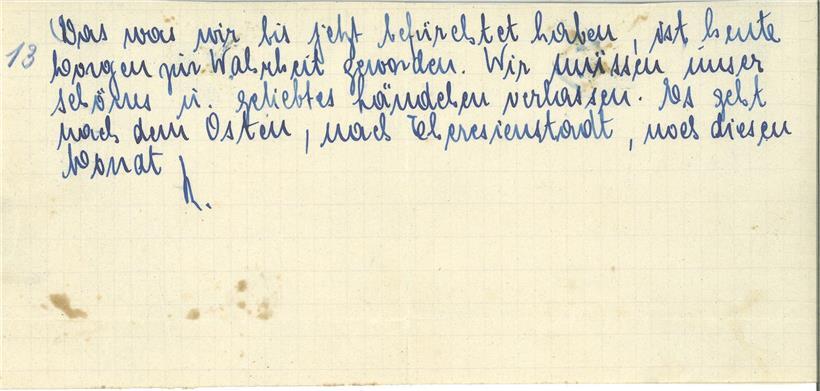 Das was wir bis jetzt befürchtet haben, ist heute
13 Morgen zur Wahrheit geworden. Wir müssen unser
schönes u. geliebtes Ländchen verlassen. Es geht
nach dem Osten, nach Theresienstadt, noch diesen
Monat
R.